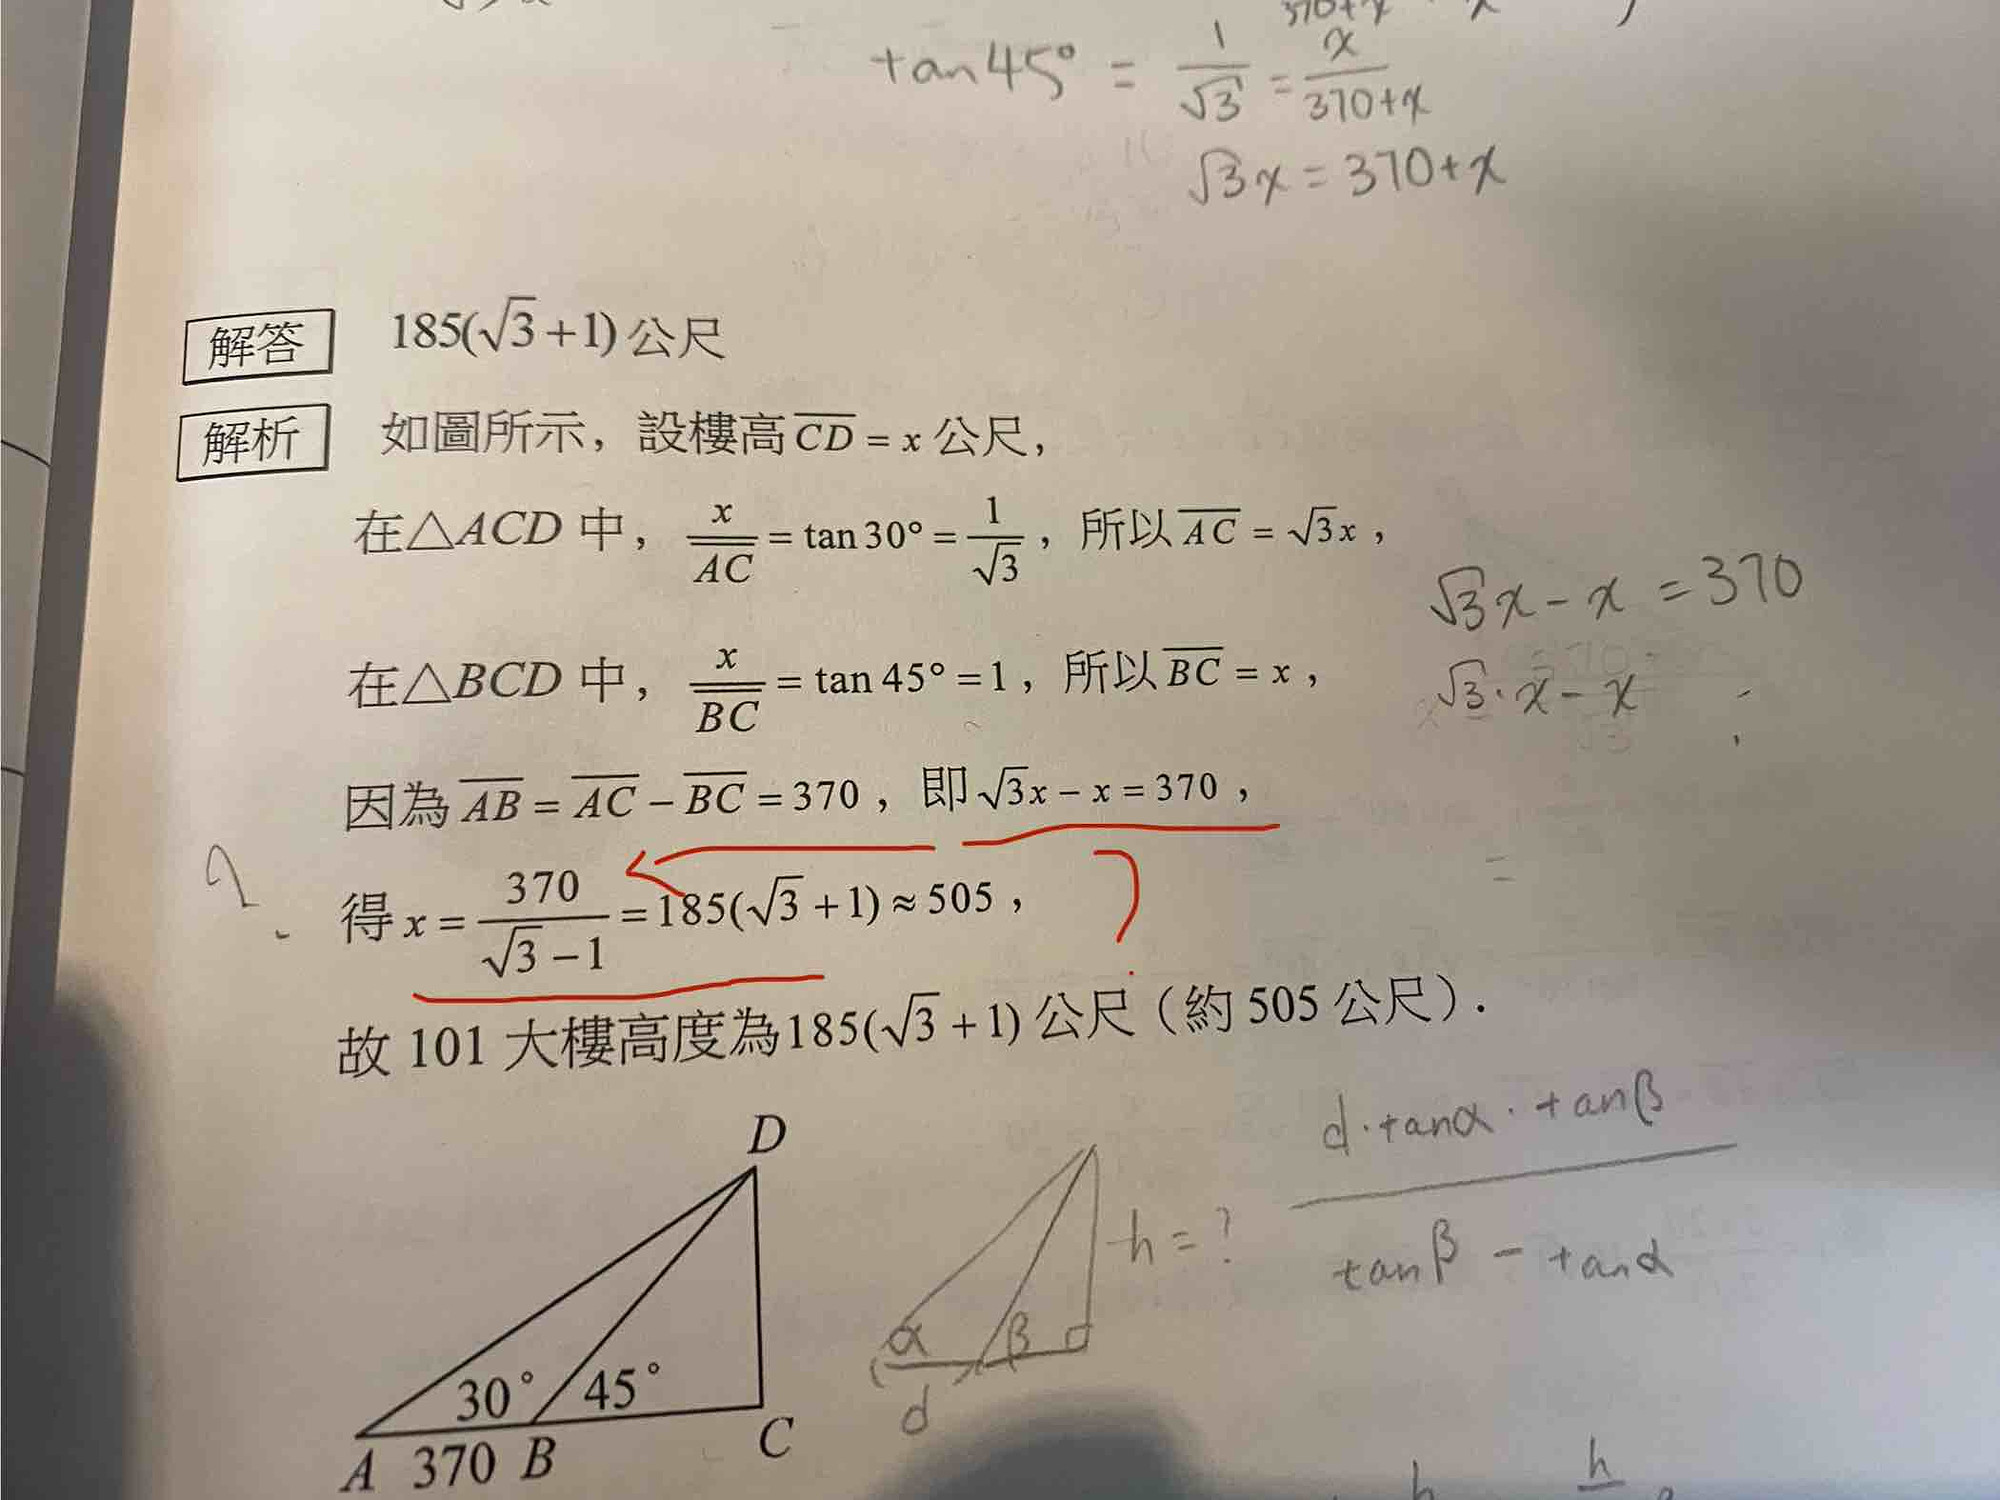 370+x
tan45° = 1/√3 = x/370+x
√3x = 370+x
解答 185(√3+1)公尺
解析 如圖所示，設樓高CD = x 公尺，
在△ACD 中，x/AC = tan 30° = 1/√3，所以 AC = √3x，
√3x - x = 370
在△BCD 中，x/BC = tan 45° = 1，所以 BC = x，
√3·x - x
因為 AB = AC - BC = 370，即√3x - x = 370，
?
得 x = 370/√3-1 = 185(√3+1) ≈ 505，
故 101 大樓高度為185(√3+1) 公尺（約 505 公尺）.
d·tanα·tanβ
tanβ - tanα
D
h = ?
30° 45°
α β
A 370 B C
d
h h